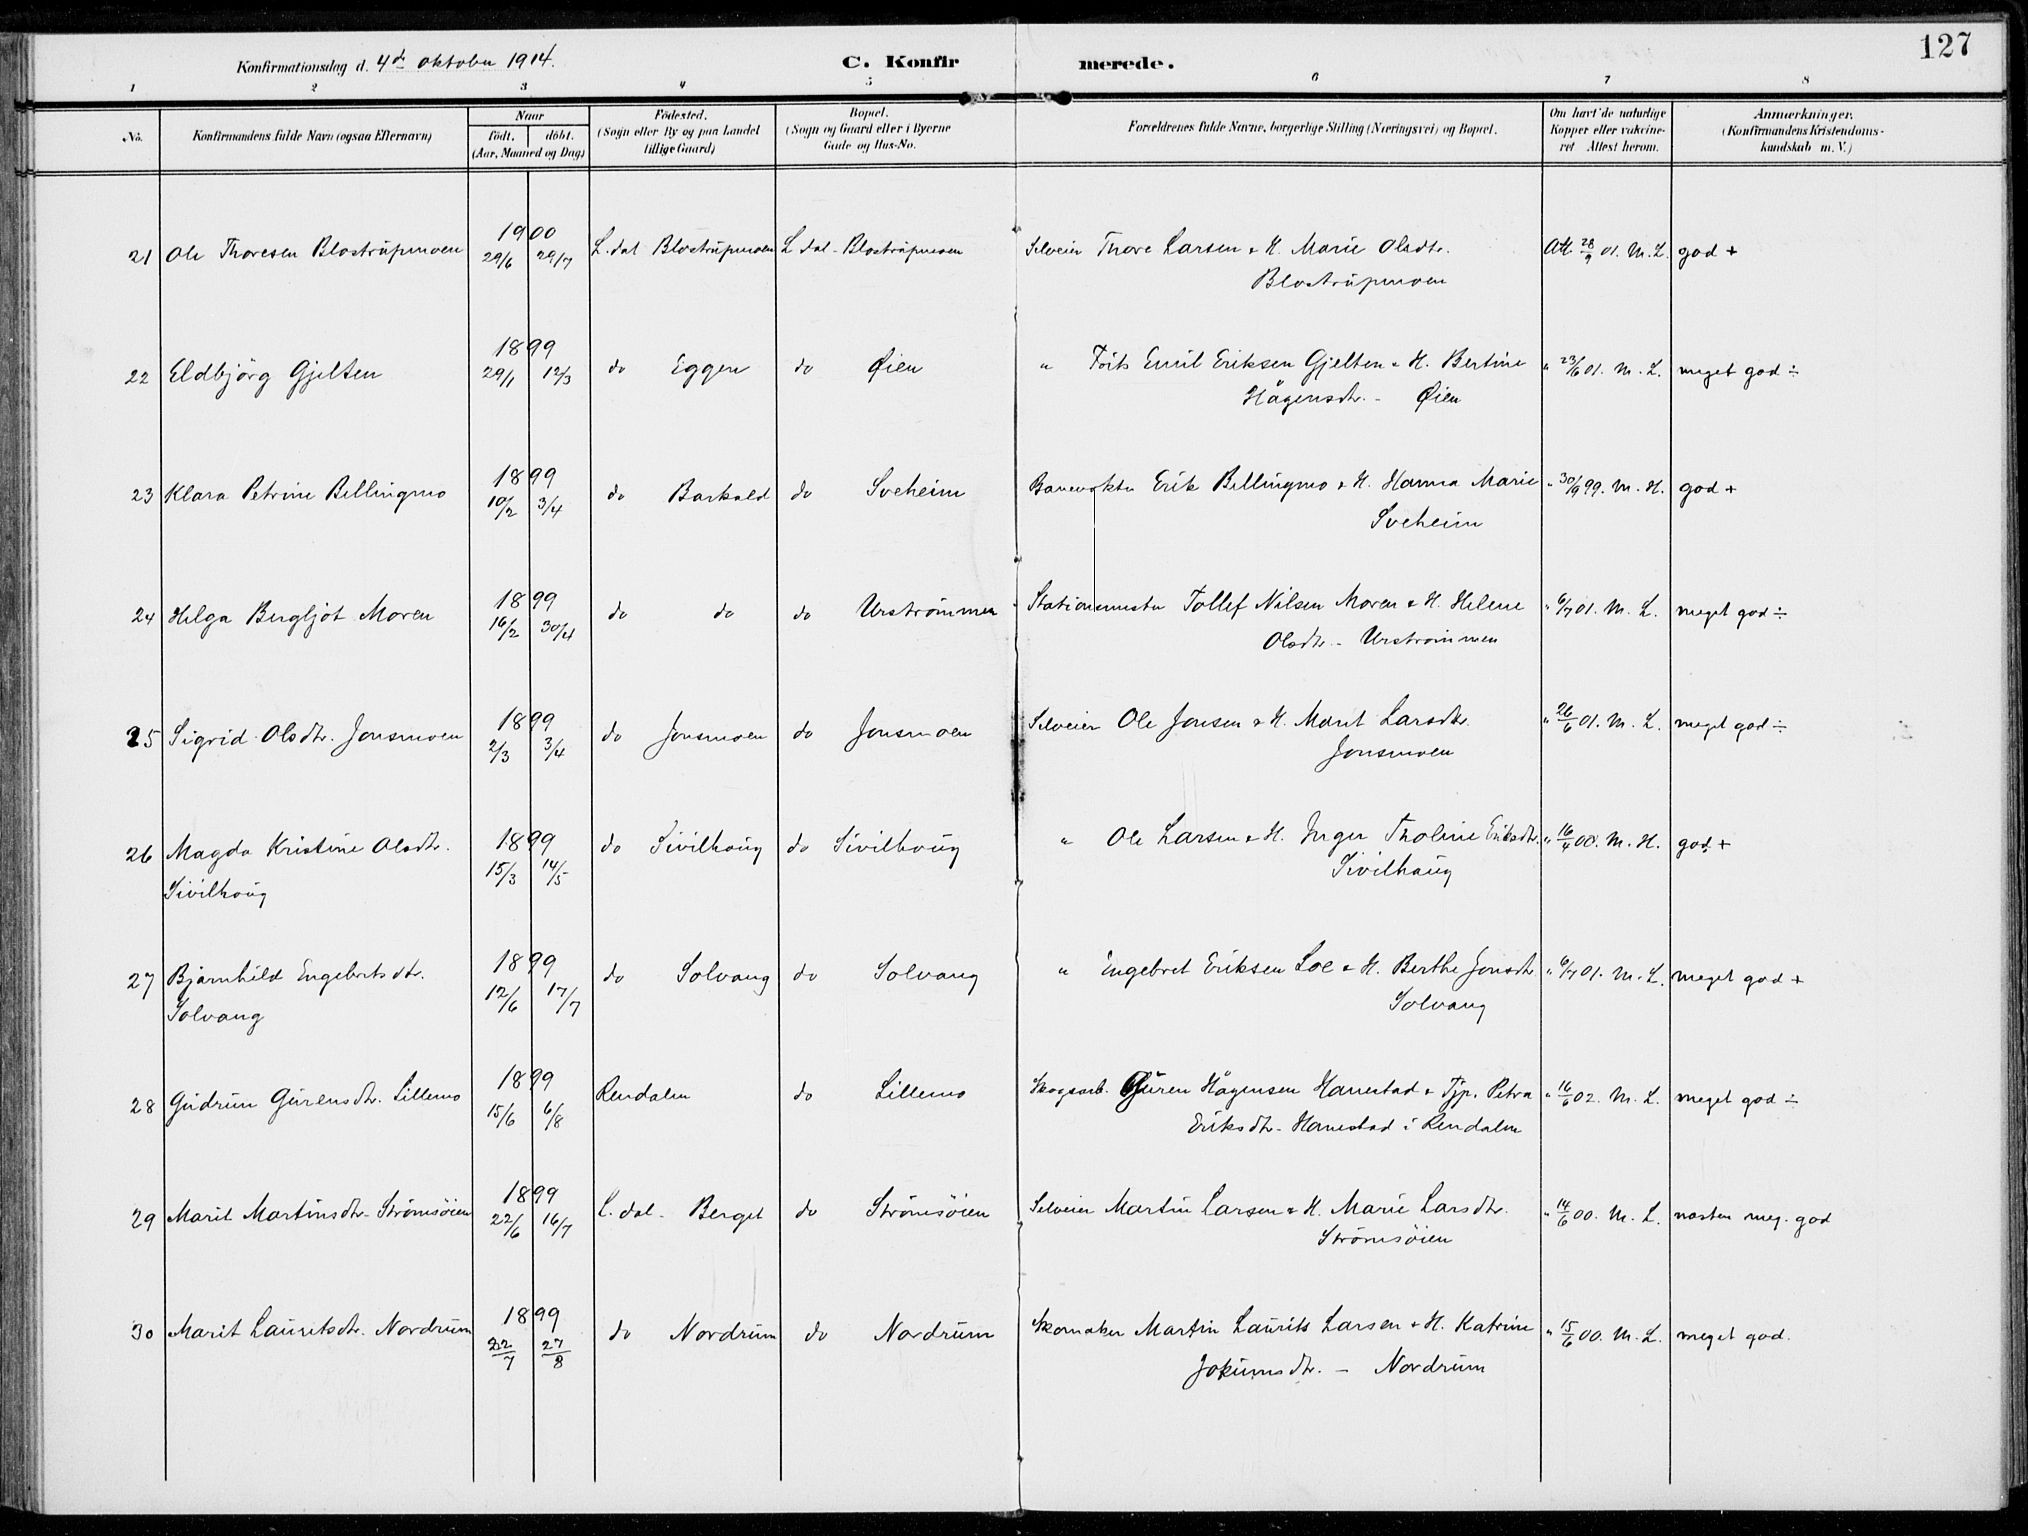 127
Konfirmationsdag d. 4de oktober 1914. C. Konfirmerede.
1 2 3 4 5 6 7 8
No. Konfirmandens fulde Navn (ogsaa Efternavn) Naar födt. döbt. (Aar, Maaned og Dag) Födested. (Sogn eller By og paa Landet tillige Gaard) Bopæl. (Sogn og Gaard eller i Byerne Gade og Hus-No. Forældrenes fulde Navne, borgerlige Stilling (Næringsvei) og Bopæl. Om havt de naturlige Kopper eller vakcineret Attest herom. Anmærkninger. (Konfirmandens Kristendomskundskab m. V.)
1900
21 Ole Thoresen Blostrüpmoen 29/6 29/7 L.dal Blostrüpmoen L dal - Blostrüpmoen Selveier Thore Larsen & H. Marie Olsdtr. Att. 28/9 01. M. L. god +
Blostrüpmoen
1899
22 Eldbjörg Gjelten 29/1 12/3 do Eggen do Øien " Emil Eriksen Gjelten & H. Bertine " 23/6 01. M. L. meget god ÷
Hågensdtr. - Øien
1899
23 Klara Petrine Bellingmo 10/2 3/4 do Barkald do Sveheim Banevokter Erik Bellingmo & H. Hanna Marie " 30/9 99. M. H. god +
Sveheim
1899
24 Helga Bergljot Moren 16/2 30/4 do do do Urströmmen Stationsmester Tollef Nilsen Moren & H. Helene " 6/7 01. M. L. meget god ÷
Olsdtr. - Urströmmen
1899
25 Sigrid Olsdtr. Jonsmoen 2/3 3/4 do Jonsmoen do Jonsmoen Selveier Ole Jonsen & H. Marit Larsdtr. " 26/6 01. M. L. meget god ÷
Jonsmoen
1899
26 Magda Kristine Olsdtr. 15/3 14/5 do Sivilhaüg do Sivilhoüg " Ole Larsen & H. Inger Tholine Eriksdtr. " 16/4 00. M. H. god +
Sivilhoüg Sivilhaüg
1899
27 Bjarnhild Engebretsdtr. 12/6 17/7 do Solvang do Solvang " Engebret Eriksen Loe & H. Berthe Jonsdtr. " 6/7 01. M. L. meget god +
Solvang Solvang
1899
28 Güdrün Gürensdtr. Lillemo 15/6 6/8 Rendalen do Lillemo Skogsarb. Güren Hågensen Hanestad & Tjp. Petra " 16/6 02. M. L. meget god ÷
Eriksdtr. - Hanestad i Rendalen
1899
29 Marit Martinsdtr. Strömsöien 22/6 16/7 L. dal - Berget do Strömsöien Selveier Martin Larsen & H. Marie Larsdtr. " 14/6 00. M. L. næsten meg. god
Strömsöien
1899
30 Marit Lauritsdtr. Nordrüm 22/7 27/8 do Nordrüm do Nordrüm Skomaker Martin Laürits Larsen & H. Katrine " 15/6 00. M. L. meget god.
Jokümsdtr. - Nordrüm